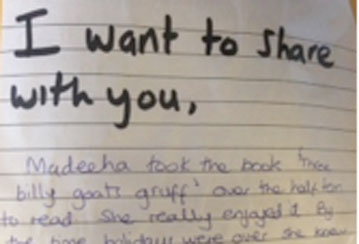 I want to share
with you,
Madeeha took the book 'Three
billy goats gruff' over the half ton
to read. She really enjoyed it By
the time holidays were over she knew